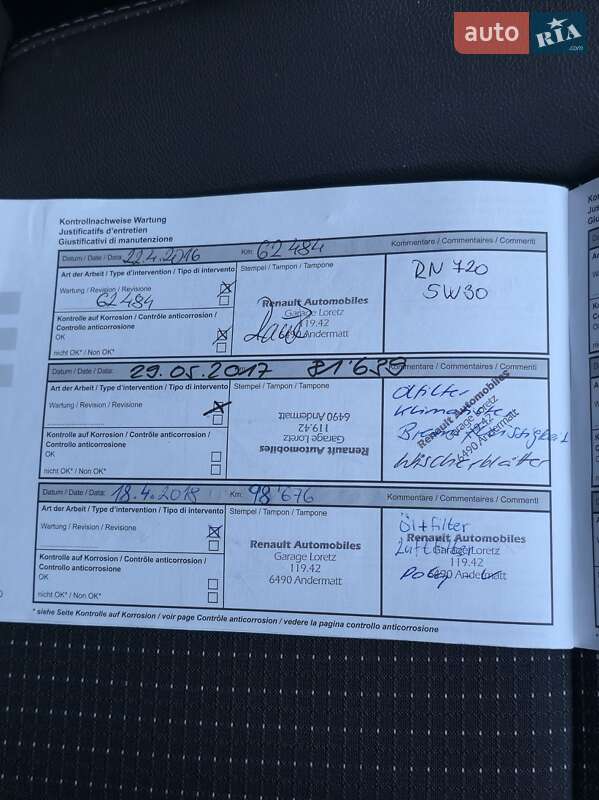 auto RIA .com
Kontrollnachweise Wartung
Justificatifs d'entretien
Giustificativi di manutenzione
Datum / Date / Data: 22.4.2016 Km: 62 484 Kommentare / Commentaires / Commenti
Art der Arbeit / Type d'intervention / Tipo di intervento Stempel / Tampon / Tampone
Wartung / Revision / Revisione
62484
Kontrolle auf Korrosion / Contrôle anticorrosion /
Controllo anticorrosione
OK
nicht OK* / Non OK*
Renault Automobiles
Garage Loretz
119.42
Andermatt
RN 720
5W30
Datum / Date / Data: 29.05.2017 81'639 Kommentare / Commentaires / Commenti
Art der Arbeit / Type d'intervention / Tipo di intervento Stempel / Tampon / Tampone
Wartung / Revision / Revisione
Kontrolle auf Korrosion / Contrôle anticorrosion /
Controllo anticorrosione
OK
nicht OK* / Non OK*
Renault Automobiles
Garage Loretz
119.42
6490 Andermatt
Ölfilter
Wischerblätter
Renault Automobiles
Garage Loretz
119.42
6490 Andermatt
Datum / Date / Data: 18.4.2018 Km: 98'676 Kommentare / Commentaires / Commenti
Art der Arbeit / Type d'intervention / Tipo di intervento Stempel / Tampon / Tampone
Wartung / Revision / Revisione
Kontrolle auf Korrosion / Contrôle anticorrosion /
Controllo anticorrosione
OK
nicht OK* / Non OK*
Renault Automobiles
Garage Loretz
119.42
6490 Andermatt
Öl+filter
Renault Automobiles
Luftfilter
Garage Loretz
119.42
6490 Andermatt
* siehe Seite Kontrolle auf Korrosion / voir page Contrôle anticorrosion / vedere la pagina controllo anticorrosione